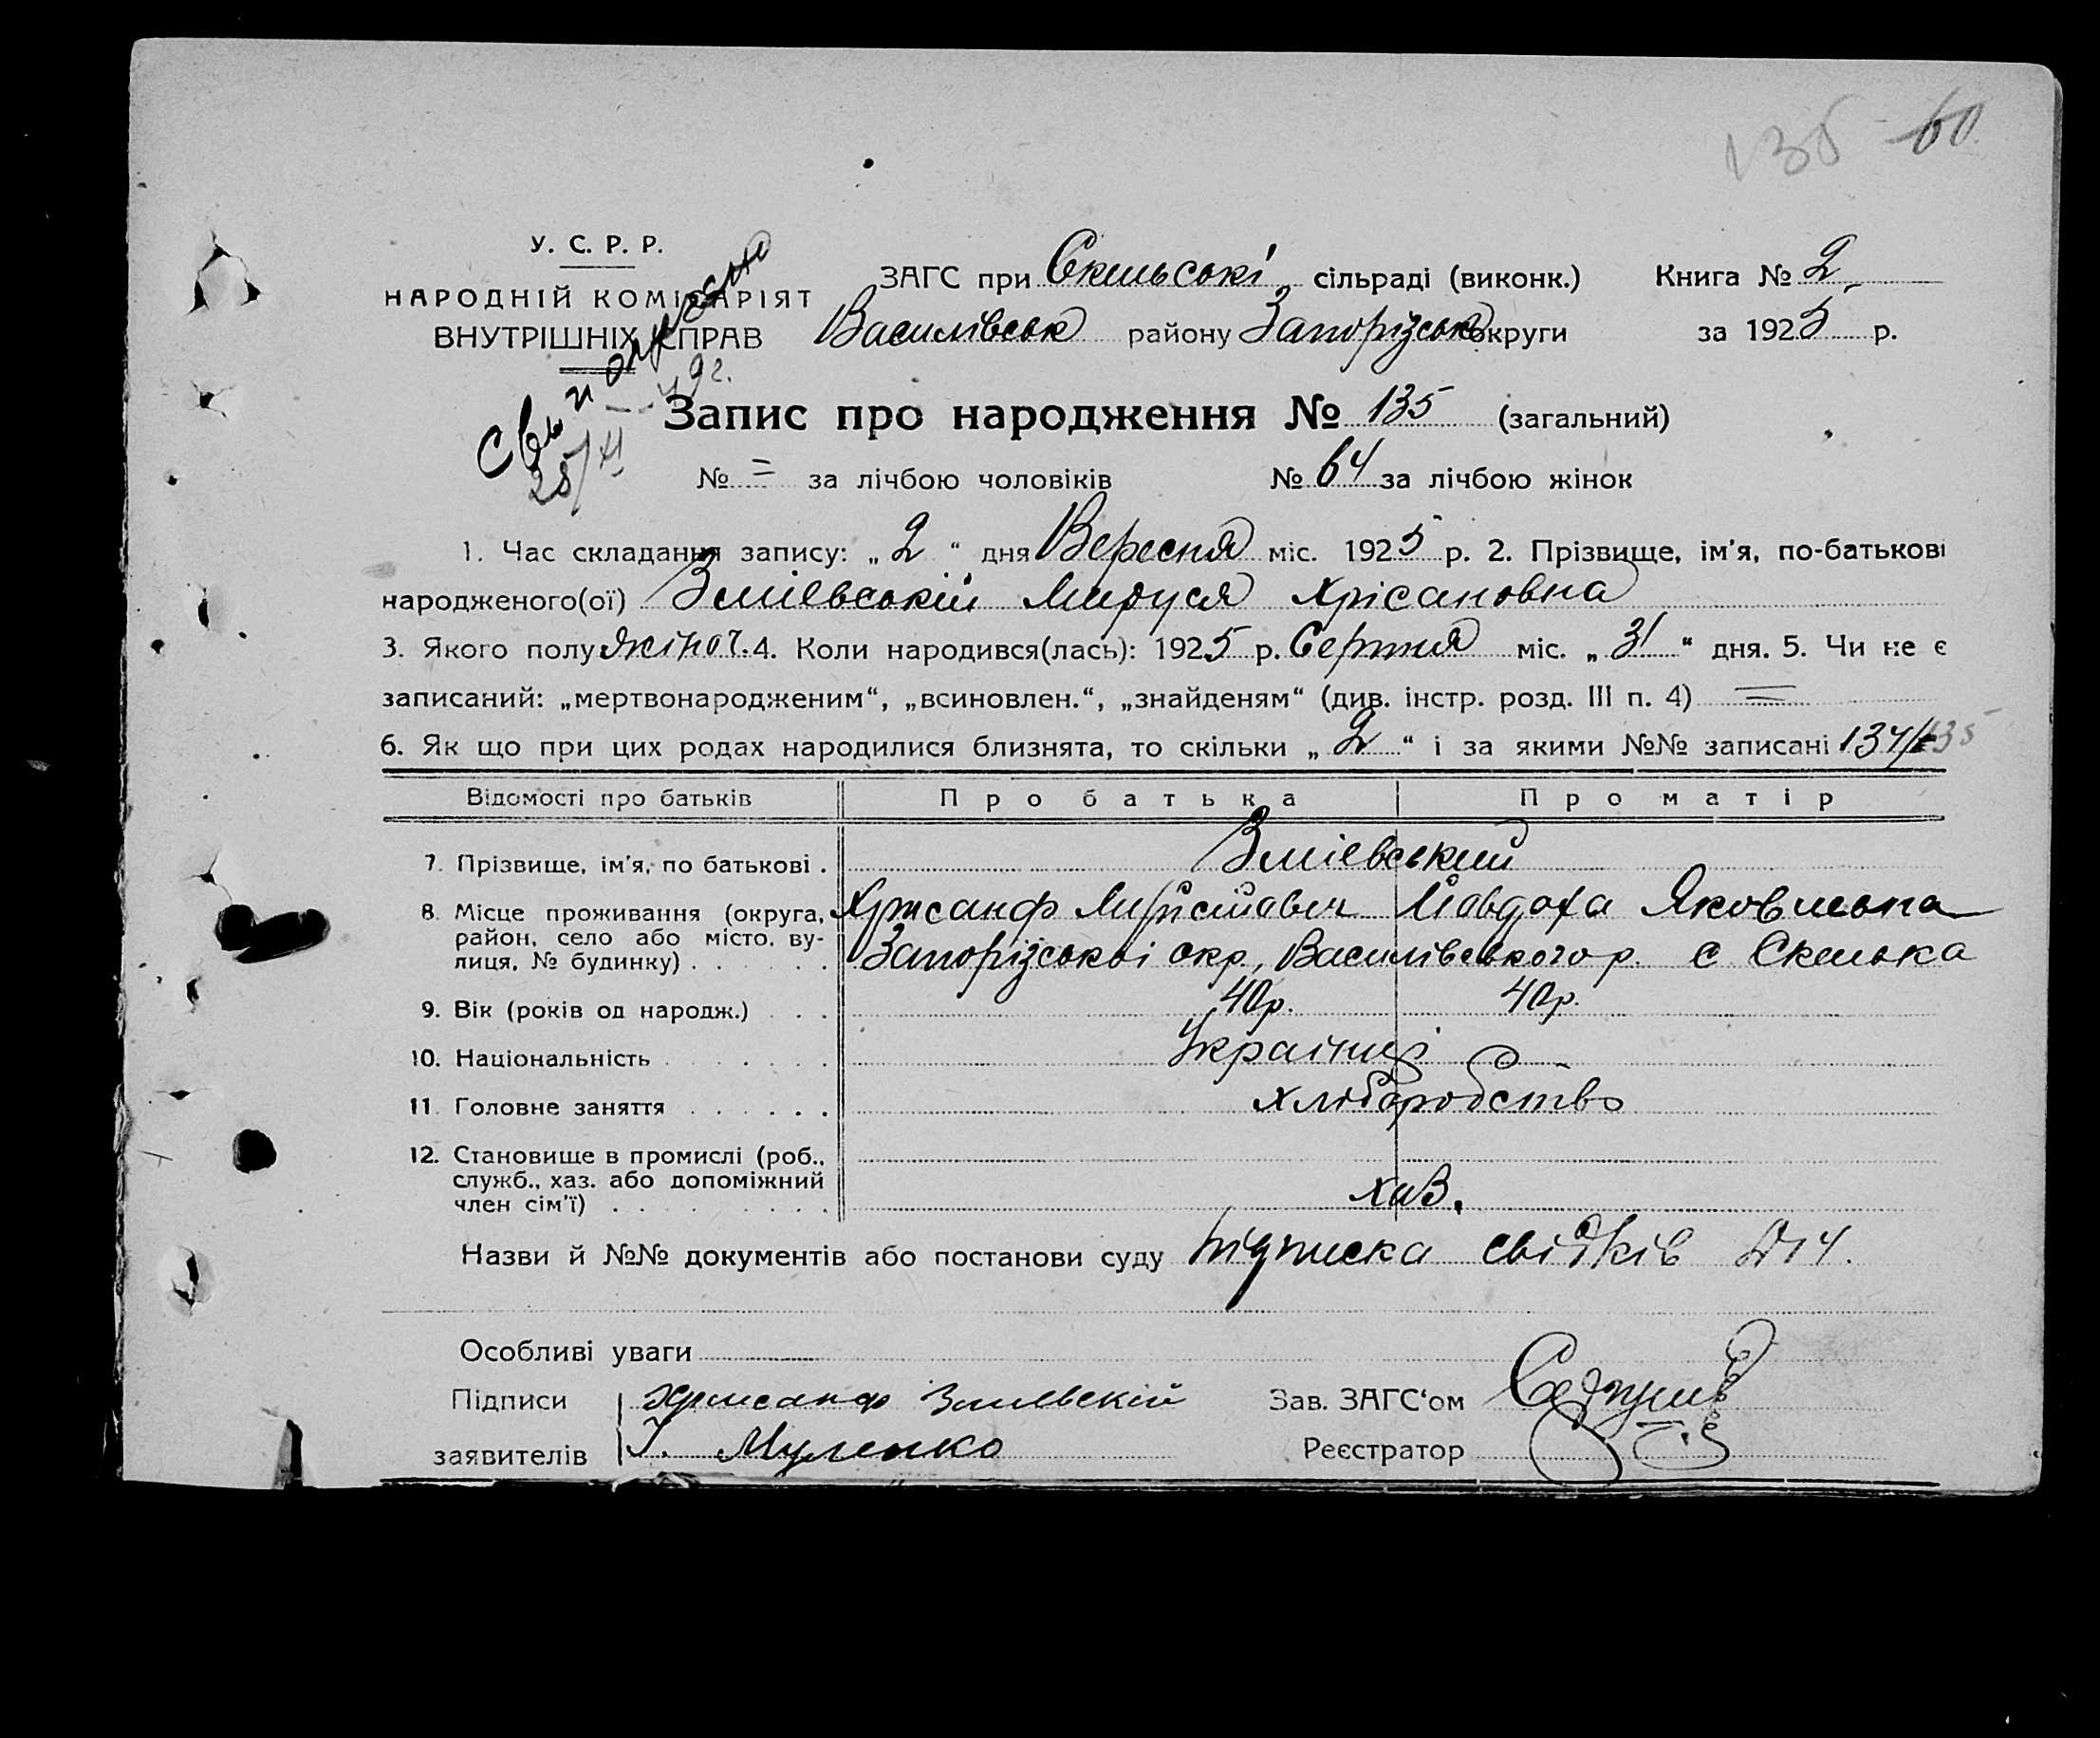 135 60
У. С. Р. Р.
НАРОДНІЙ КОМІСАРІЯТ
ВНУТРІШНІХ СПРАВ
ЗАГС при Скельські сільраді (виконк.) Книга № 2
Василівськ району Запорізськ округи за 1925 р.
Запис про народження № 135 (загальний)
№ = за лічбою чоловіків № 64 за лічбою жінок
1. Час складання запису: „ 2 “ дня Вересня міс. 1925 р. 2. Прізвище, ім’я, по-батькові
народженого(ої) Зміевській Маруся Хрісановна
3. Якого полу жіноч. 4. Коли народився(лась): 1925 р. Серпня міс. „ 31 “ дня. 5. Чи не є
записаний: „мертвонародженим“, „всиновлен.“, „знайденям“ (див. інстр. розд. III п. 4) =
6. Як що при цих родах народилися близнята, то скільки „ 2 “ і за якими №№ записані 134/135
Відомості про батьків Про батька Про матір
7. Прізвище, ім’я, по батькові . Зміевський
Хрисанф Явдоха Яковльовна
8. Місце проживання (округа,
район, село або місто, ву-
лиця, № будинку) . . . . . . Запорізської окр., Василівського р. с Скелька
9. Вік (років од народж.) . . . 40р. 40р.
10. Національність . . . . . . Українці
11. Головне заняття . . . . . . хліборобство
12. Становище в промислі (роб.,
служб., хаз. або допоміжний
член сім’ї) . . . . . . . . хаз.
Назви й №№ документів або постанови суду підписка свідків №14.
Особливі уваги
Підписи Хрисанф Змиевскій Зав. ЗАГС‘ом
заявителів Реєстратор